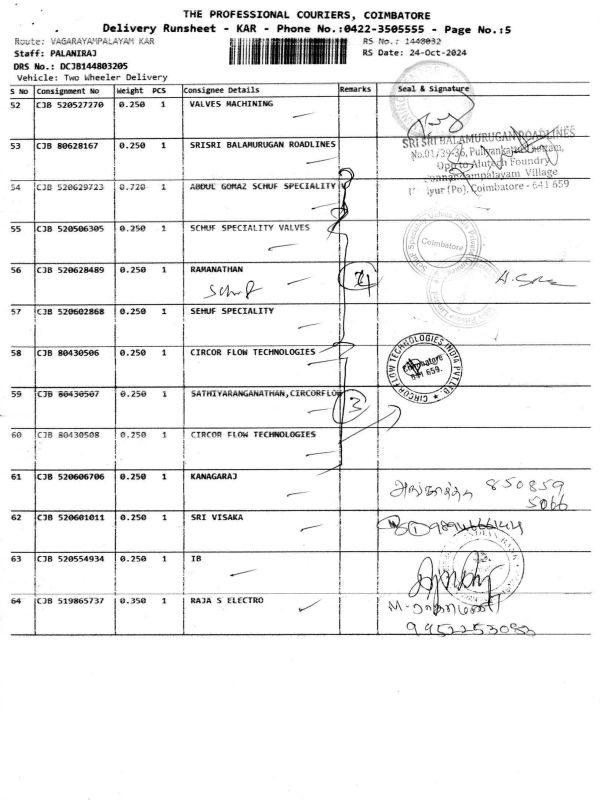 THE PROFESSIONAL COURIERS, COIMBATORE
Delivery Runsheet - KAR - Phone No.:0422-3505555 - Page No.:5
Route: VAGARAYAMPALAYAM KAR RS No.: 1448032
Staff: PALANIRAJ RS Date: 24-Oct-2024
DRS No.: DCJB144803205
Vehicle: Two Wheeler Delivery
S No Consignment No Weight PCS Consignee Details Remarks Seal & Signature
52 CJB 520527270 0.250 1 VALVES MACHINING
53 CJB 80628167 0.250 1 SRISRI BALAMURUGAN ROADLINES
SRI SRI BALAMURUGAN ROADLINES
No.01/39-36, Puliyankattu Thottam,
Opp to Alutech Foundry
Ponnandampalayam Village
Coimbatore - 641 659
54 CJB 520629723 0.720 1 ABDUL GOMAZ SCHUF SPECIALITY V
55 CJB 520506305 0.250 1 SCHUF SPECIALITY VALVES
Coimbatore
56 CJB 520628489 0.250 1 RAMANATHAN
Schuf
57 CJB 520602868 0.250 1 SEHUF SPECIALITY
58 CJB 80430506 0.250 1 CIRCOR FLOW TECHNOLOGIES
CIRCOR FLOW TECHNOLOGIES INDIA PVT LTD.
Coimbatore
641 659.
59 CJB 80430507 0.250 1 SATHIYARANGANATHAN,CIRCORFLOW
3
60 CJB 80430508 0.250 1 CIRCOR FLOW TECHNOLOGIES
61 CJB 520606706 0.250 1 KANAGARAJ
850859
5066
62 CJB 520601011 0.250 1 SRI VISAKA
63 CJB 520554934 0.250 1 IB
64 CJB 519865737 0.350 1 RAJA S ELECTRO
9952253083